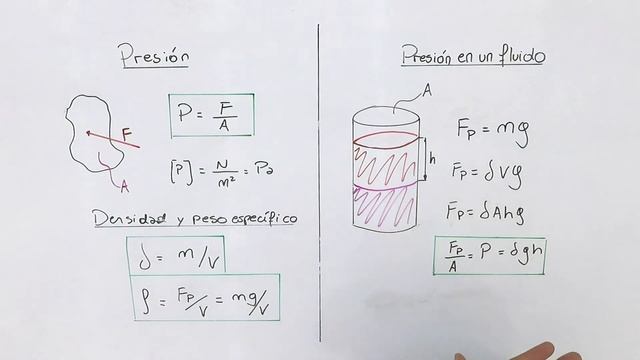 Presión
F
A
P = F/A
[P] = N/m² = Pa
Densidad y peso específico
δ = m/V
ρ = Fp/V = mg/V
Presión en un fluido
A
h
Fp = mg
Fp = δVg
Fp = δAhg
Fp/A = P = δgh